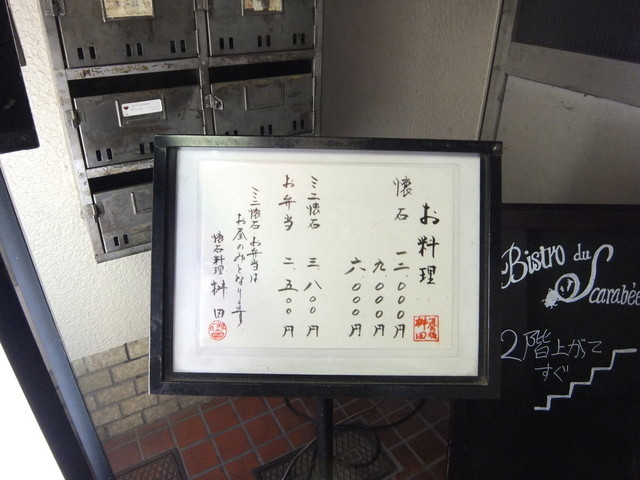 お料理
懐石 一二、〇〇〇円
九、〇〇〇円
六、〇〇〇円
ミニ懐石 三、八〇〇円
お弁当 二、五〇〇円
ミニ懐石 お弁当は
お昼のみとなります
懐石料理 桝田
桝田
Bistro du
Scarabée
2階上がて
すぐ